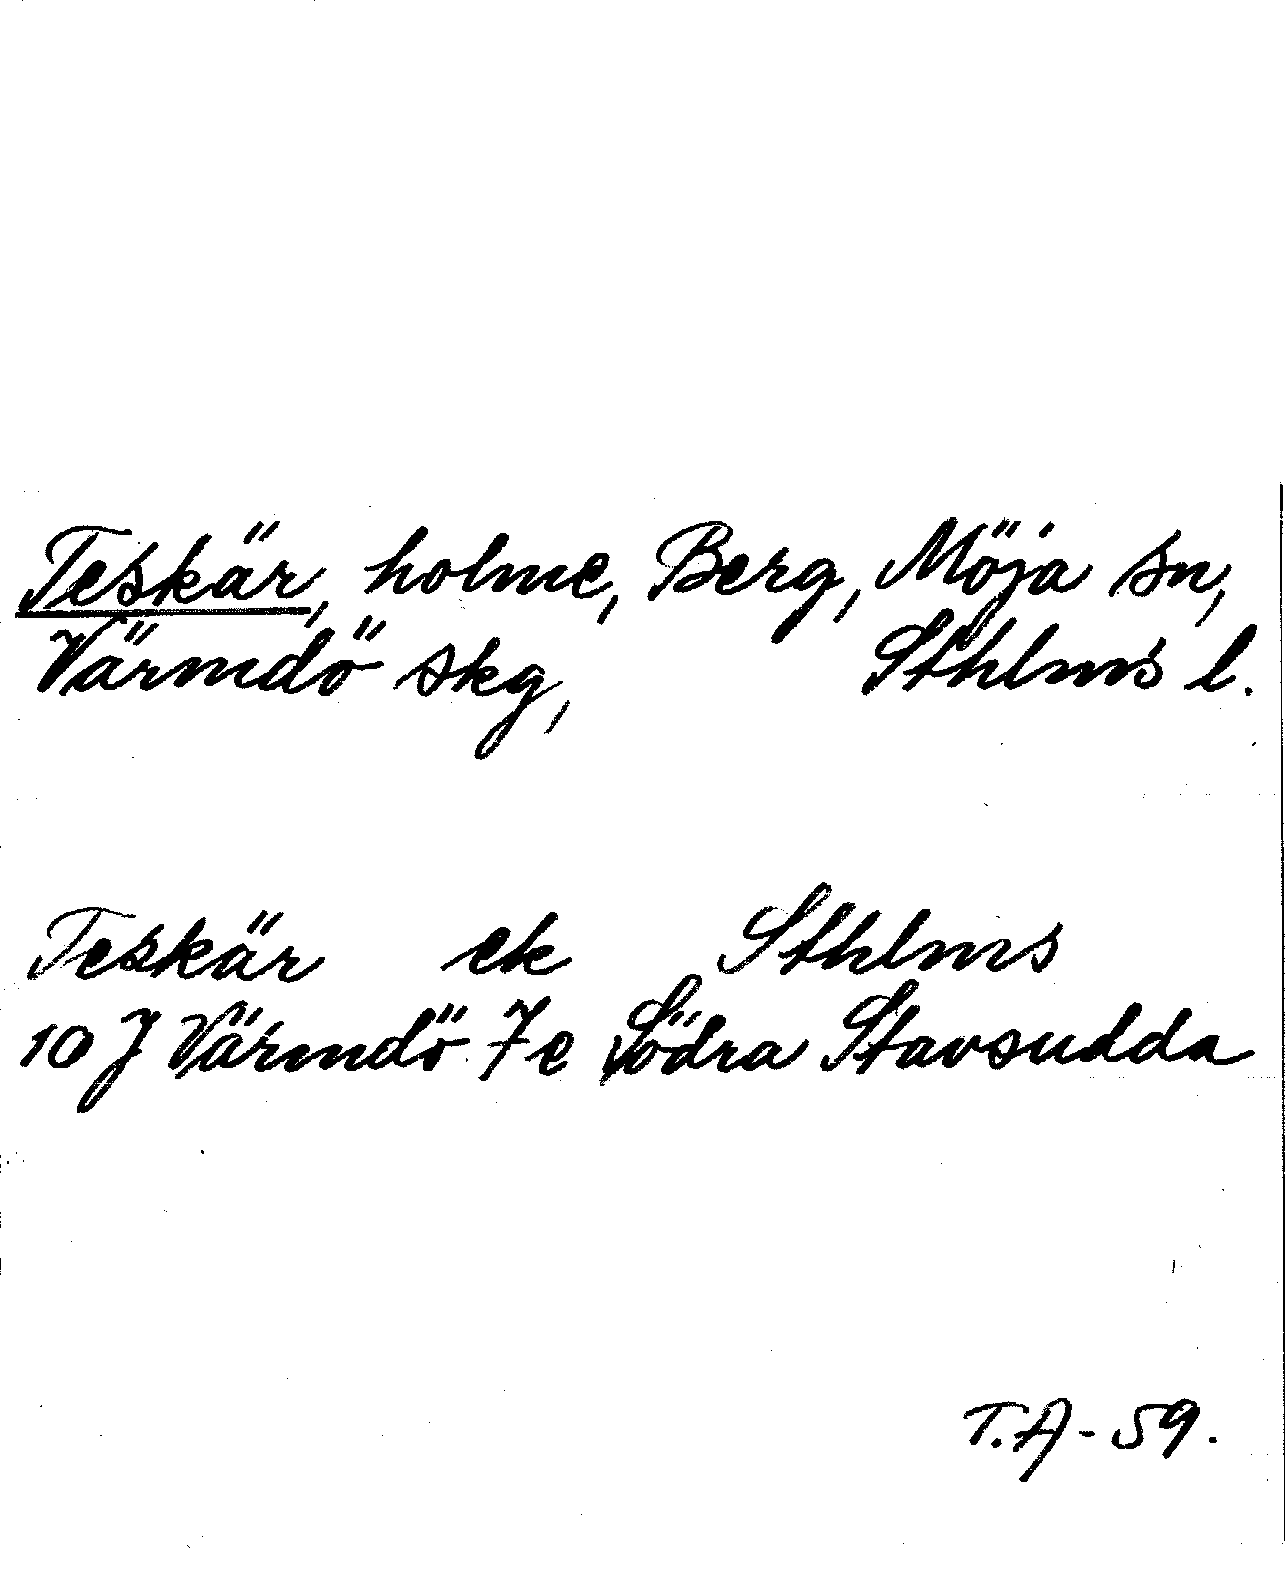 Teskär, holme, Berg, Möja sn,
Värmdö skg, Sthlms l.
Teskär ek Sthlms
10 J Värmdö 7e Södra Stavsudda
T.A-59.